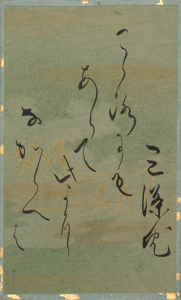 三條院
こゝろにも
あらて
此よに
なからへは